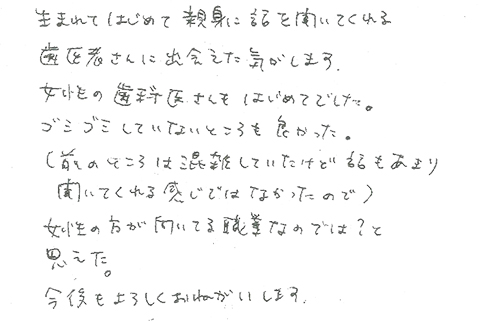 生まれてはじめて親身に話を聞いてくれる
歯医者さんに出会えた気がします。
女性の歯科医さんもはじめてでした。
ゴミゴミしていないところも良かった。
（前のところは混雑していたけど話もあまり
聞いてくれる感じではなかったので）
女性の方が向いてる職業なのでは？と
思えた。
今後もよろしくおねがいします。